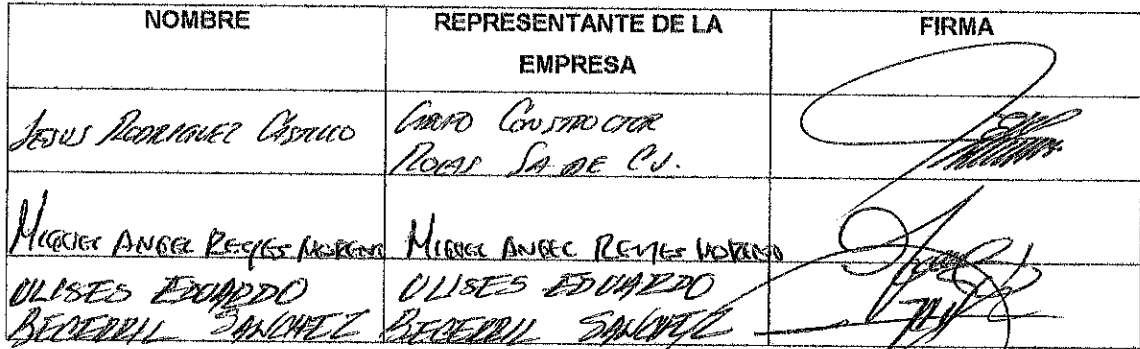 NOMBRE
REPRESENTANTE DE LA
EMPRESA
FIRMA
JESUS RODRIGUEZ CASTILLO
GRUPO CONSTRUCTOR
ROCAS SA DE C.V.
MIGUEL ANGEL REYES MORENO
MIGUEL ANGEL REYES MORENO
ULISES EDUARDO
BECERRIL SANCHEZ
ULISES EDUARDO
BECERRIL SANCHEZ